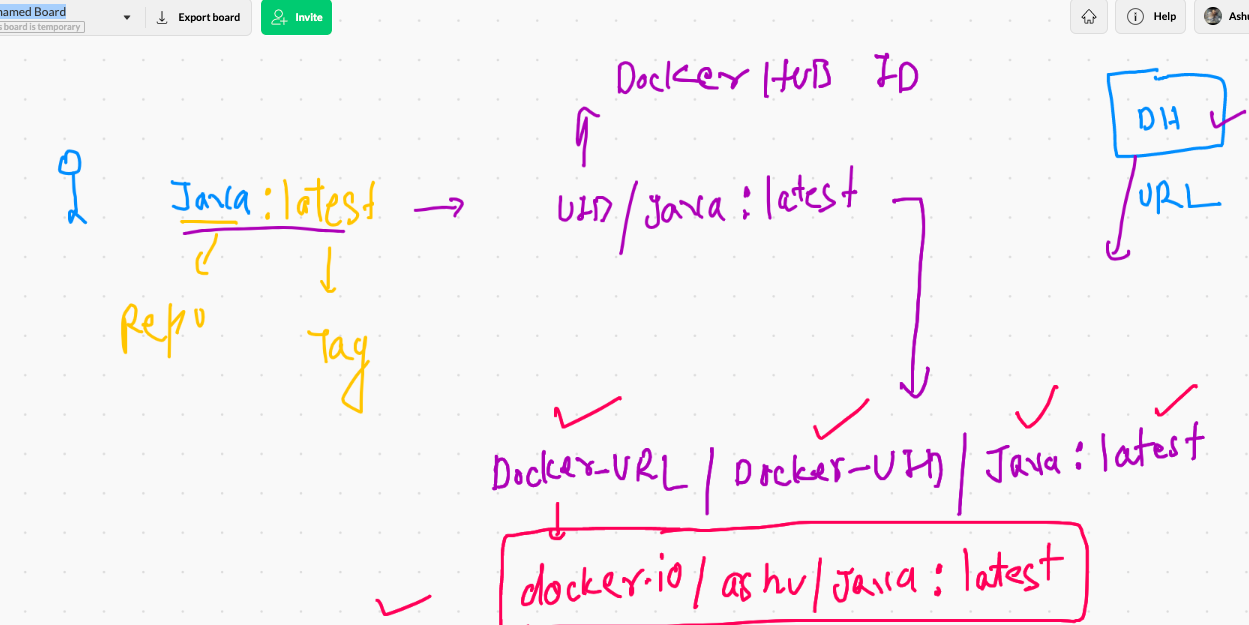 named Board
s board is temporary
Export board
Invite
Help
Ashu
Docker HUB ID
DH
URL
Java : latest
UID / java : latest
Repo
Tag
Docker-URL / Docker-UID / Java : latest
docker.io / ashu / java : latest